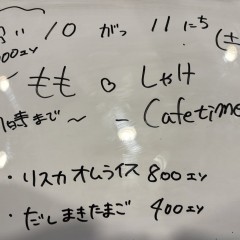 10 がつ 11 にち (土
00エン
もも ♡ しゃけ
時まで〜 − Cafetime
・リスカ オムライス 800エン
・だしまきたまご 400エン